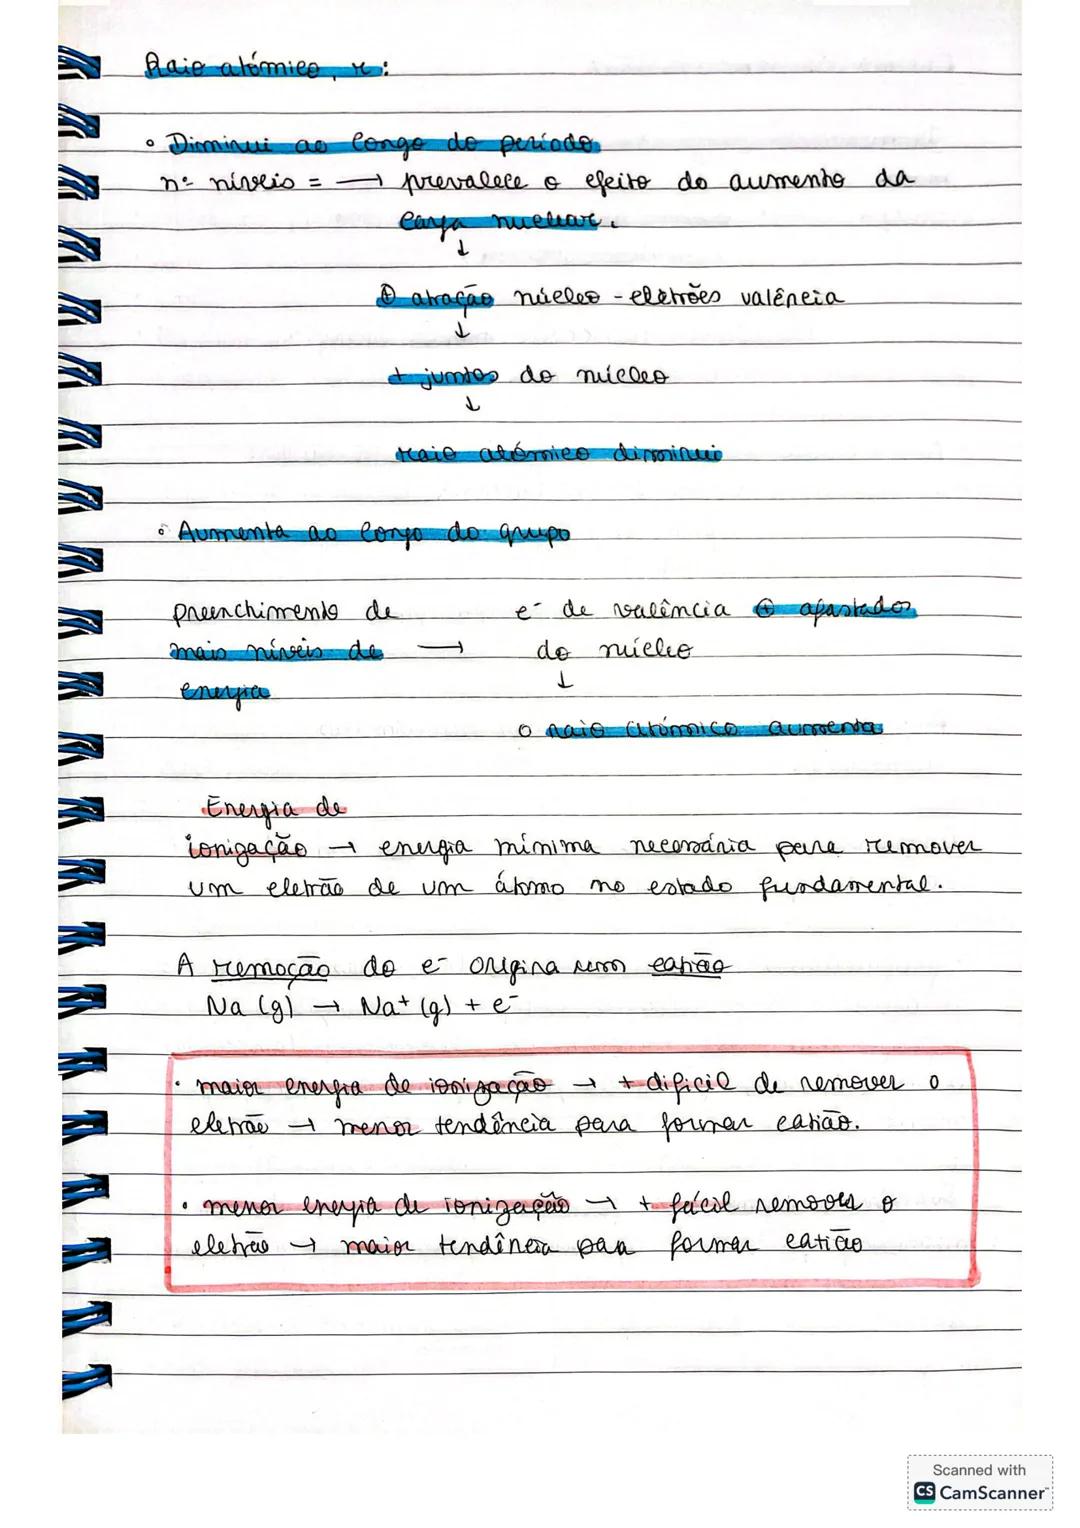 Raio atómico, r:
• Diminui ao longo do período
nº níveis = → prevalece o efeito do aumento da
carga nuclear.
↓
⊕ atração núcleo - eletrões valência
↓
+ juntos do núcleo
↓
raio atómico diminui
• Aumenta ao longo do grupo
preenchimento de e⁻ de valência ⊕ afastados
mais níveis de → do núcleo
energia ↓
o raio atómico aumenta
Energia de
ionização → energia mínima necessária para remover
um eletrão de um átomo no estado fundamental.
A remoção do e⁻ origina um catião
Na (g) → Na⁺ (g) + e⁻
• maior energia de ionização → + dificil de remover o
eletrão → menor tendência para formar catião.
• menor energia de ionização → + fácil remover o
eletrão → maior tendência para formar catião
Scanned with
CS CamScanner